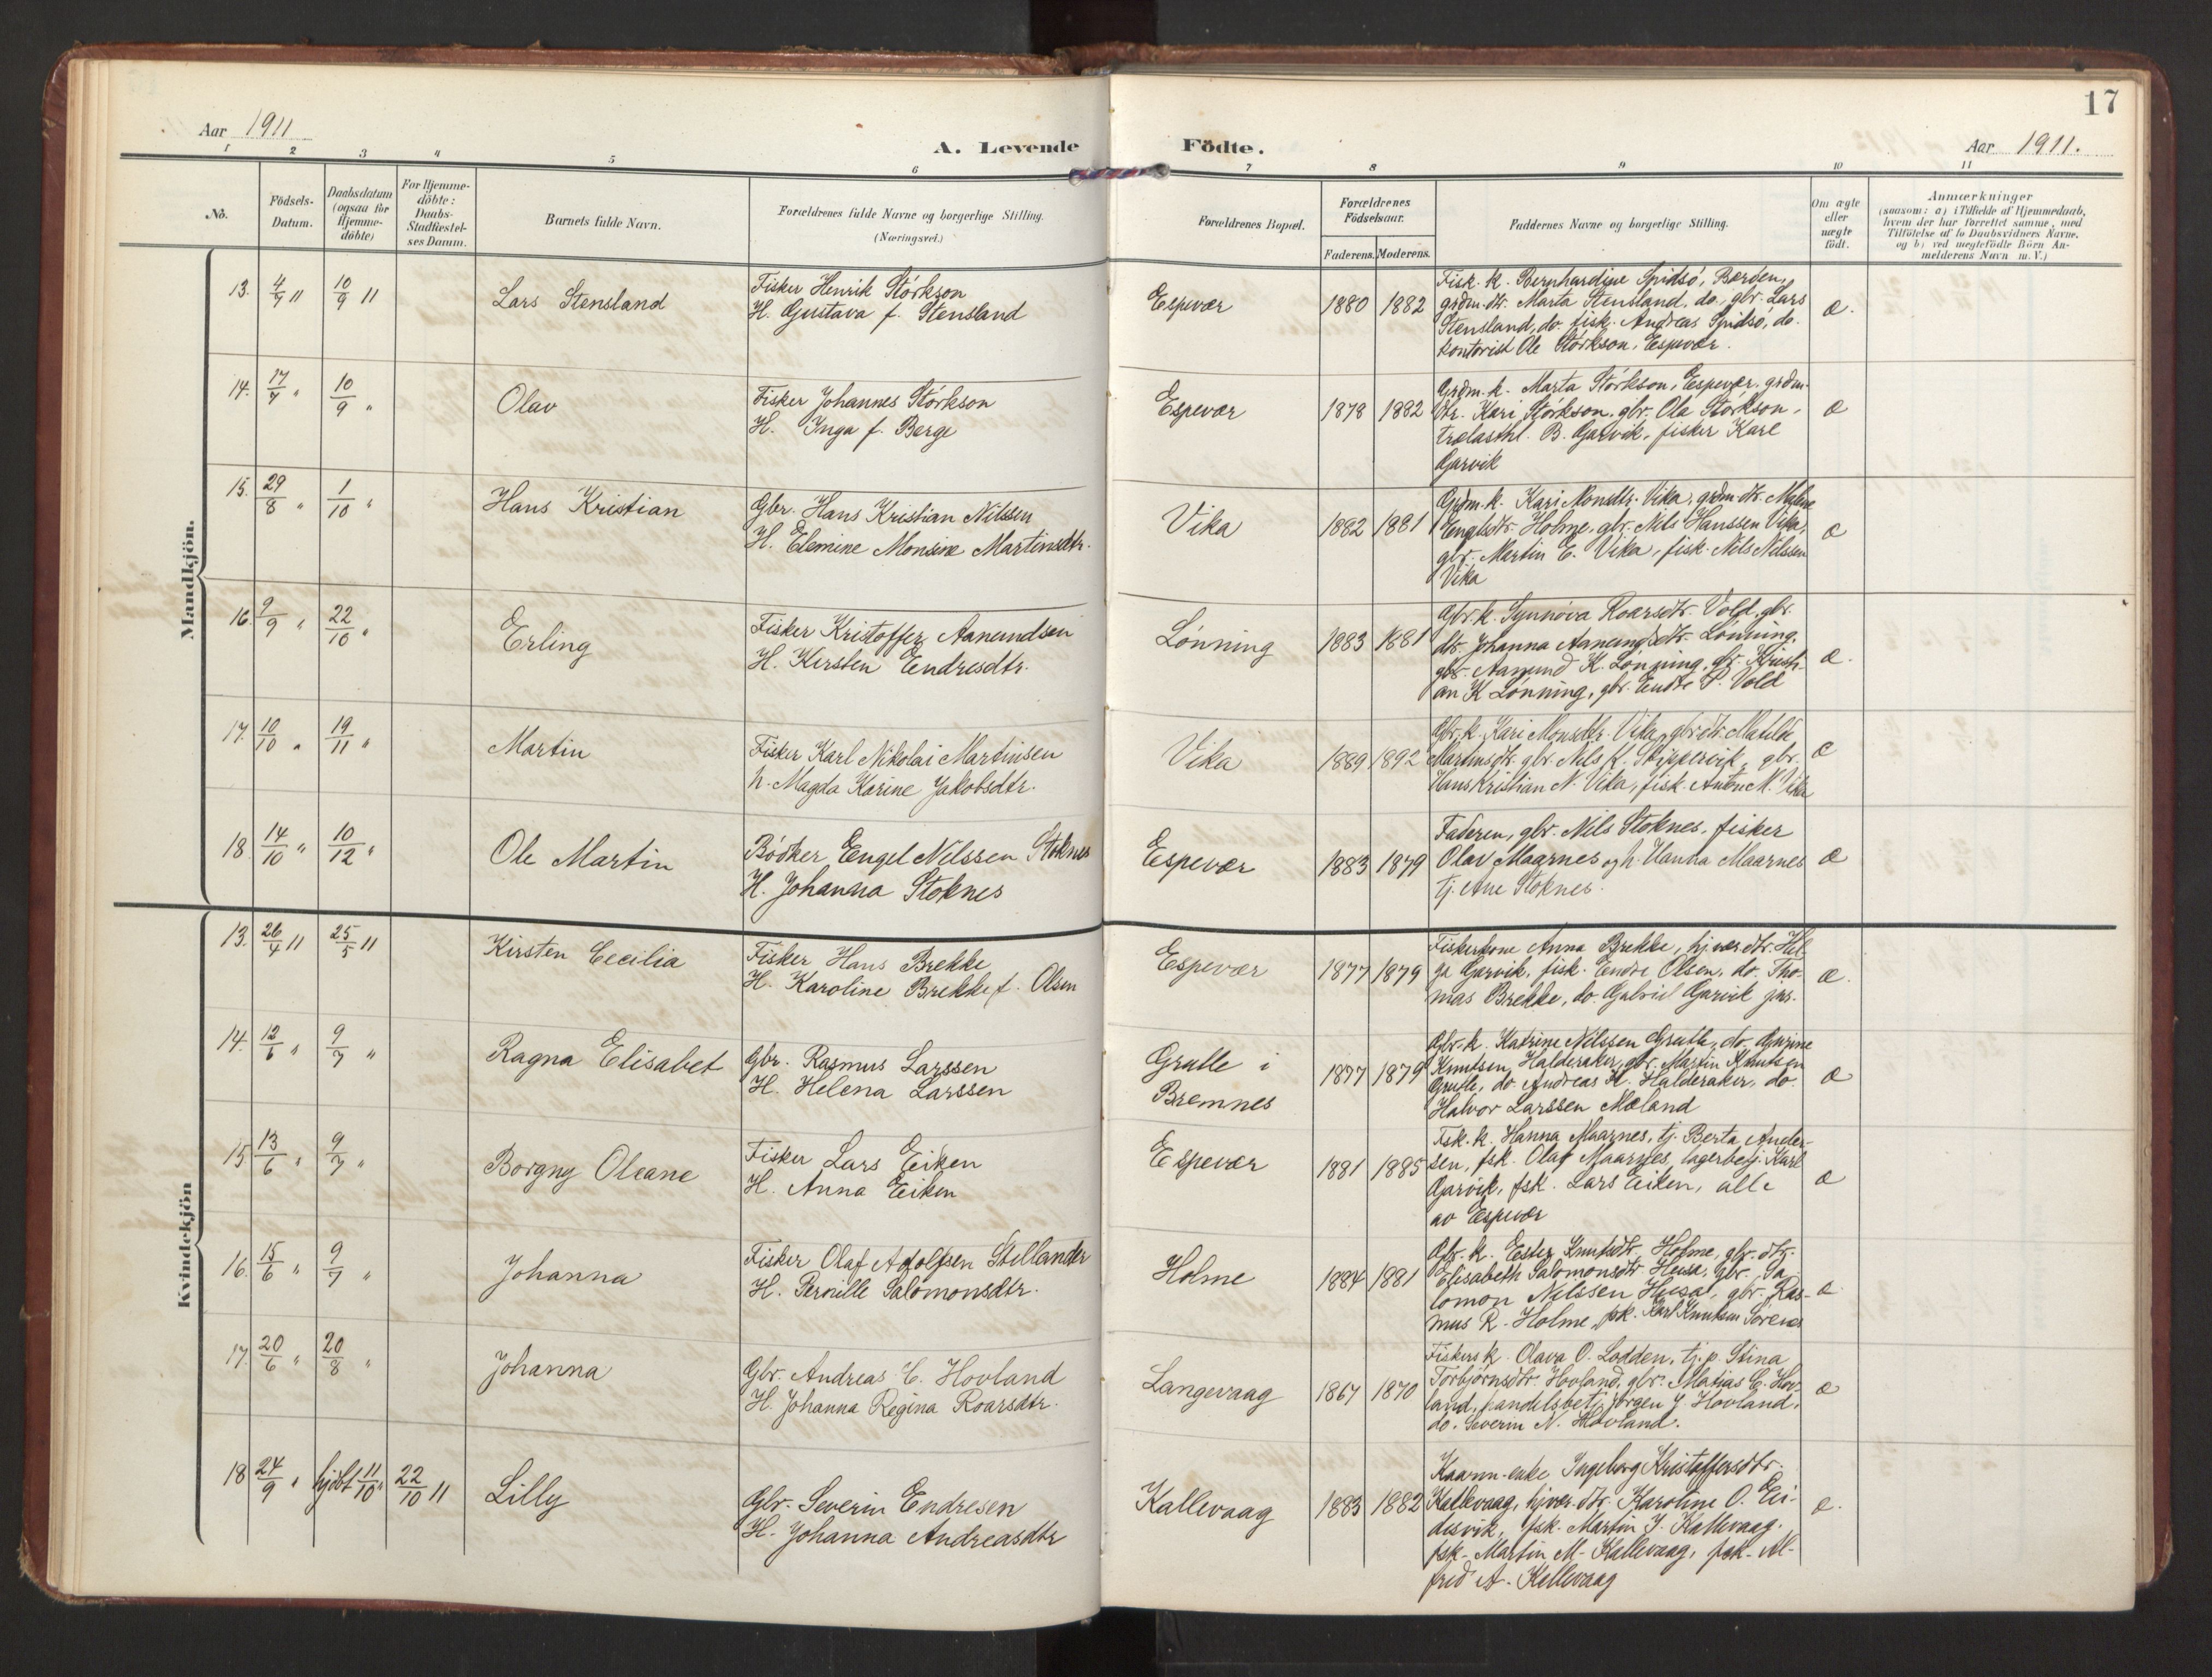 17
Aar 1911
A. Levende
Födte.
Aar 1911.
1 2 3 4 5 6 7 8 9 10 11
No.
Födsels-
Datum.
Daabsdatum
(ogsaa for
Hjemme-
döbte)
For Hjemme-
döbte:
Daabs-
Stadfæstel-
ses Datum.
Barnets fulde Navn.
Forældrenes fulde Navne og borgerlige Stilling.
(Næringsvei.)
Forældrenes Bopæl.
Forældrenes
Födselsaar.
Faderens. Moderens.
Faddernes Navne og borgerlige Stilling.
Om ægte
eller
uægte
födt.
Anmærkninger
(saasom: a) i Tilfælde af Hjemmedaab,
hvem der har forrettet samme, med
Tilföielse af to Daabsvidners Navne.
og b) ved uægtefödte Börn An-
melderens Navn m.V.)
Mandkjön.
13. 4/7 11 10/9 11
Lars Stensland
Fisker Henrik Störkson
H. Gustava f. Stensland
Espevær
1880 1882
Fisk. k. Bernhardine Spidsö, Børden,
grdm. dtr. Marta Stensland, do, gbr. Lars
Stensland, do. fisk. Andreas Spidsö, do.
kontorist Ole Störkson, Espevær.
æ.
14. 17/7 " 10/9 "
Olav
Fisker Johannes Störkson
H. Inga f. Berge
Espevær
1878 1882
Grdm. k. Marta Störkson, Espevær. grdm.
dtr. Kari Störkson, gbr. Ola Störkson,
trælasthl. B. Garvik, fisker Karl
Garvik
æ
15. 29/8 " 1/10 "
Hans Kristian
Gbr. Hans Kristian Nilssen
H. Elemine Monsine Martinsdtr.
Vika
1882 1881
Grdm. k. Kari Monsdtr. Vika, grdm. dtr. Malene
Engelsdtr. Holme, gbr. Nils Hanssen Vika,
gbr. Martin E. Vika, fisk. Nils Nilssen
Vika
æ
16. 9/9 " 22/10 "
Erling
Fisker Kristoffer Aamundsen
H. Kirsten Endresdtr.
Lönning
1883 1881
Gbr. k. Synnöva Roarsdtr. Vold, gbr.
dtr. Johanna Aamundsdtr. Lönning,
gbr. Aamund K. Lönning, gbr. Kristi-
an K Lönning, gbr. Endre P. Vold
æ.
17. 10/10 " 19/11 "
Martin
Fisker Karl Nikolai Martinsen
h. Magda Karine Jakobsdtr.
Vika
1889 1892
Gbr. k. Kari Monsdtr. Vika, gbr dtr. Matilde
Martinsdtr. gbr. Nils K. Skippervik, gbr.
Hans Kristian N. Vika, fisk. Anton M. Vika
æ
18. 14/10 " 10/12 "
Ole Martin
Bödker Engel Nilssen Stoknes
H. Johanna Stoknes
Espevær
1883 1879
Faderen, gbr. Nils Stoknes, fisker
Olav Maarnes og h. Hanna Maarnes
tj. Ane Stoknes.
æ
Kvindekjön
13. 26/4 11 25/5 11
Kirsten Cecilia
Fisker Hans Brekke
H. Karoline Brekke f. Olsen
Espevær
1877 1879
Fiskerkone Anna Brekke, hj.vær. dtr. Hel-
ga Garvik, fisk. Endre Olsen, do. Tho-
mas Brekke, do. Gabriel Garvik jns.
æ.
14. 12/6 " 9/7 "
Ragna Elisabet
Gbr. Rasmus Larssen
H. Helena Larssen
Grutle i
Bremnes
1877 1879
Gbr. k. Katrine Nilssen Grutle, do. Gurine
Knutsen Halderaker, gbr. Martin Knutsen
Grutle, do Andreas H. Halderaker, do.
Halvor Larssen Mæland
æ
15 13/6 " 9/7 "
Borgny Oleane
Fisker Lars Eiken
H. Anna Eiken
Espevær
1881 1885
Fsk. k. Hanna Maarnes, tj. Berta Ander-
sen, fsk. Olaf Maarnes, lagerbetj. Karl
Garvik, fsk. Lars Eiken, alle
av Espevær
æ
16. 15/6 " 9/7 "
Johanna
Fisker Olaf Adolfsen Stillander
H. Pernille Salomonsdtr.
Holme
1884 1881
Gbr. k. Ester Knutsdtr. Holme, gbr. dtr.
Elisabeth Salomonsdtr Husa, gbr. Sa-
lomon Nilssen Husa, gbr. Ras-
mus R. Holme, fsk. Karl Knutsen Sörenes
æ.
17. 20/6 " 20/8 "
Johanna
Gbr. Andreas C. Hovland
H. Johanna Regina Roarsdtr.
Langevaag
1867 1870
Fiskers k. Olava O. Lodden, tj. p. Stina
Torbjörnsdtr. Hovland, gbr. Matias C. Hov-
land, handelsbetj. Jörgen J. Hovland,
do. Severin N. Hovland.
æ
18 24/9 " hjdbt 11/10 " 22/10 11
Lilly
Gbr. Severin Endresen
H. Johanna Andreasdtr
Kallevaag
1883 1882
Kaarm. enke Ingeborg Kristoffersdtr.
Kallevaag, hjvær. dtr. Karoline O. Ei-
desvik, fsk. Martin J. Kallevaag.
fsk. Martin M. Kallevaag, fsk. Al-
fred A. Kallevaag
æ.